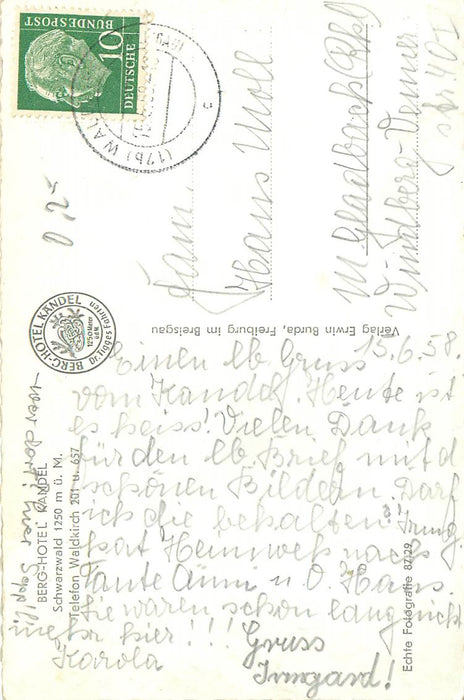 DEUTSCHE
BUNDESPOST
10
(17b) WALD
0,25
Fam.
Hans Moll
M. Gladbach (Rhl)
Windberg-Venner
str 40
Verlag Erwin Burda, Freiburg im Breisgau
BERG-HOTEL KANDEL
1250 Meter
ü.d.M.
Dr. Tigges-Fahrten
BERG-HOTEL KANDEL
Schwarzwald 1250 m ü. M.
Telefon Waldkirch 201 u. 657
Echte Fotografie 87/29
15.6.58.
Einen lb. Gruss
vom Kandel. Heute ist
es heiss! Vielen Dank
für den lb. Brief mit d
schönen Bildern. Darf
ich die behalten? Irmg.
hat Heimweh nach
Tante Änni u. O Hans
Sie waren schon lang nicht
mehr hier!!!
Karola
Gruss
Irmgard!